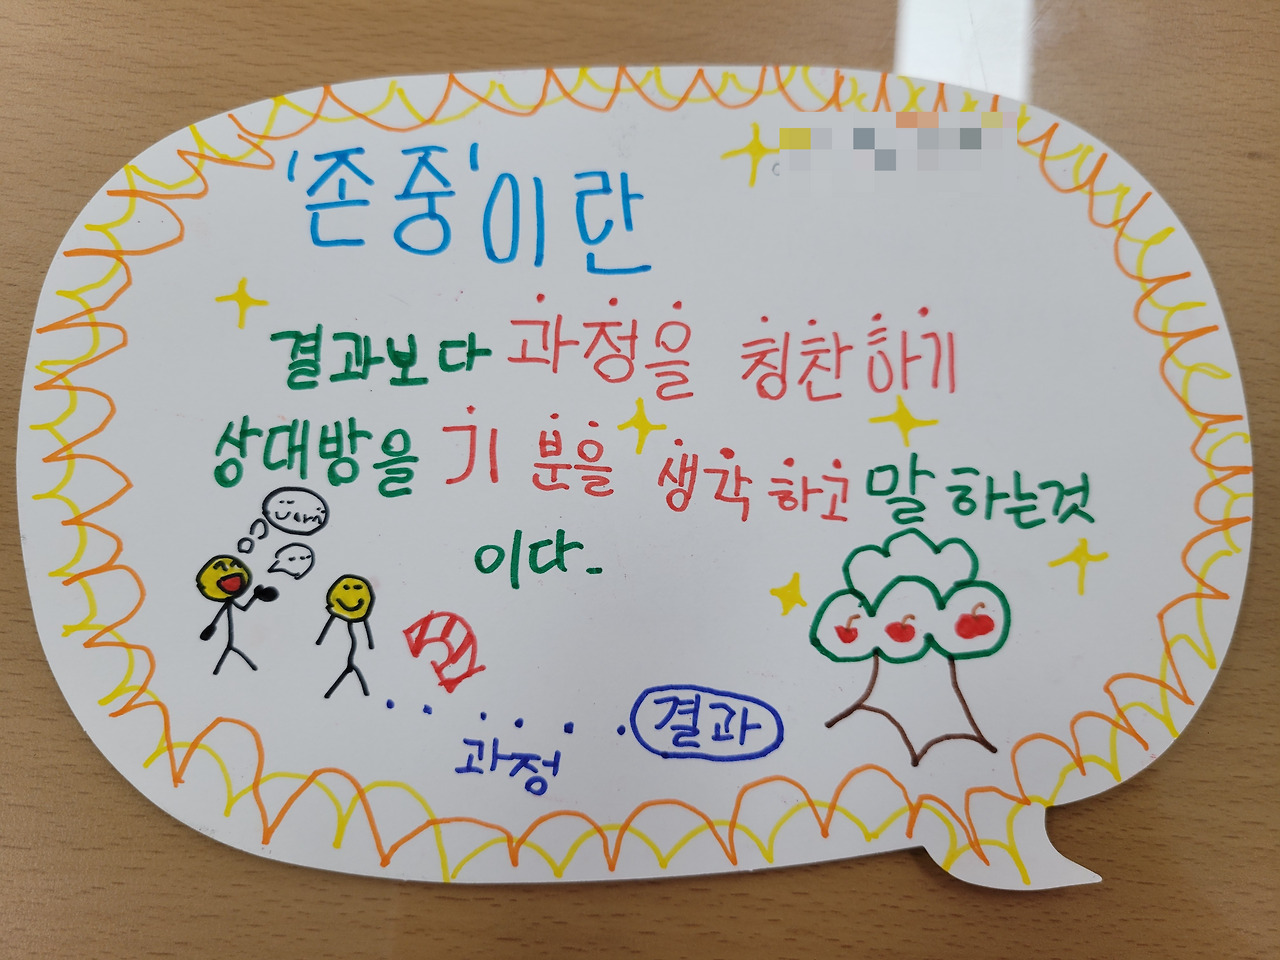 '존중'이란
결과보다 과정을 칭찬하기
상대방을 기분을 생각하고 말하는것
이다.
과정
결과